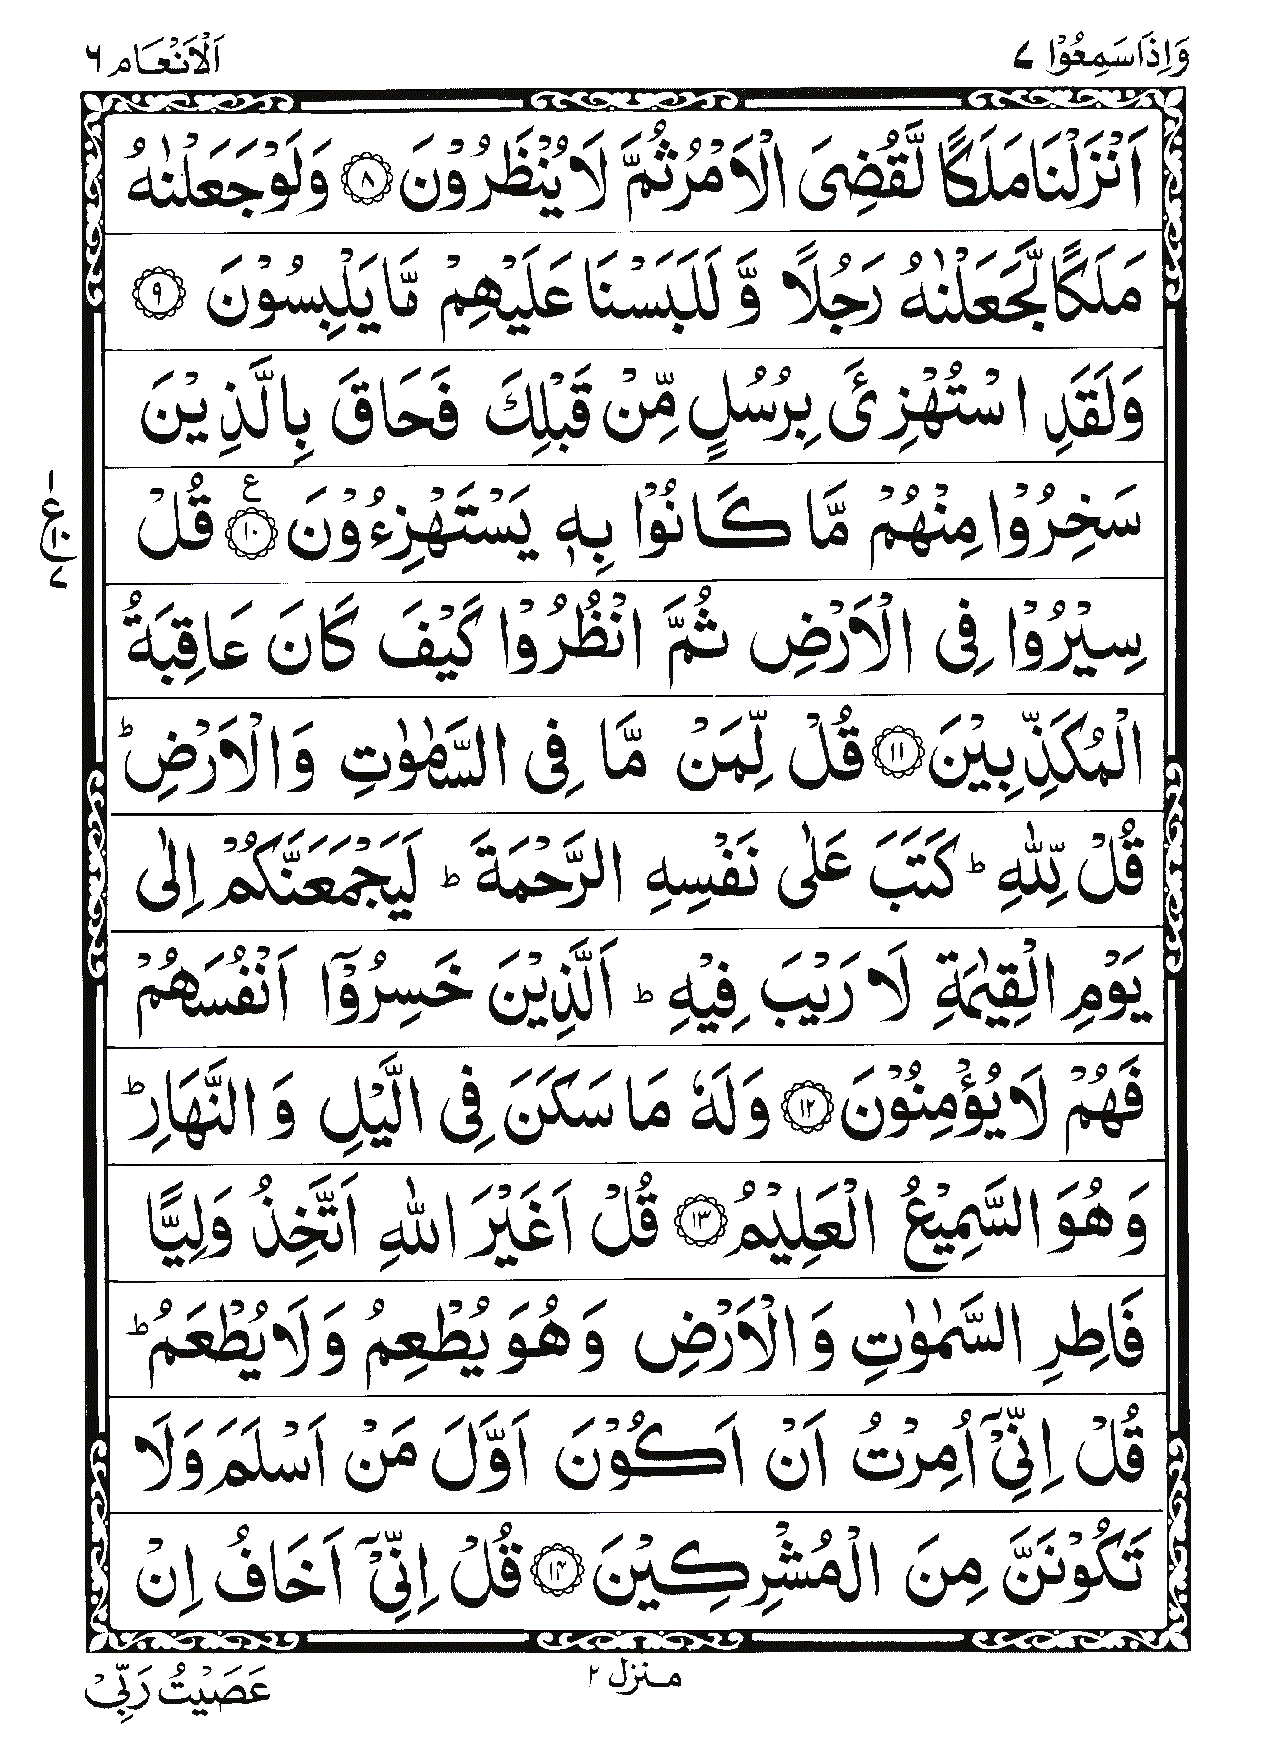 وَاِذَاسَمِعُوْا ۷
اَلْاَنْعَام ۶
اَنْزَلْنَا مَلَكًا لَّقُضِیَ الْاَمْرُ ثُمَّ لَا یُنْظَرُوْنَ ۝۸ وَلَوْ جَعَلْنٰهُ
مَلَكًا لَّجَعَلْنٰهُ رَجُلًا وَّ لَلَبَسْنَا عَلَیْهِمْ مَّا یَلْبِسُوْنَ ۝۹
وَلَقَدِ اسْتُهْزِئَ بِرُسُلٍ مِّنْ قَبْلِكَ فَحَاقَ بِالَّذِیْنَ
سَخِرُوْا مِنْهُمْ مَّا كَانُوْا بِهٖ یَسْتَهْزِءُوْنَ ۝۱۰ۧ قُلْ
۱
ع
۱۰
۷
سِیْرُوْا فِی الْاَرْضِ ثُمَّ انْظُرُوْا كَیْفَ كَانَ عَاقِبَةُ
الْمُكَذِّبِیْنَ ۝۱۱ قُلْ لِّمَنْ مَّا فِی السَّمٰوٰتِ وَالْاَرْضِ ؕ
قُلْ لِّلّٰهِ ؕ كَتَبَ عَلٰی نَفْسِهِ الرَّحْمَةَ ؕ لَیَجْمَعَنَّكُمْ اِلٰی
یَوْمِ الْقِیٰمَةِ لَا رَیْبَ فِیْهِ ؕ اَلَّذِیْنَ خَسِرُوْۤا اَنْفُسَهُمْ
فَهُمْ لَا یُؤْمِنُوْنَ ۝۱۲ وَلَهٗ مَا سَكَنَ فِی الَّیْلِ وَالنَّهَارِ ؕ
وَهُوَ السَّمِیْعُ الْعَلِیْمُ ۝۱۳ قُلْ اَغَیْرَ اللّٰهِ اَتَّخِذُ وَلِیًّا
فَاطِرِ السَّمٰوٰتِ وَالْاَرْضِ وَهُوَ یُطْعِمُ وَلَا یُطْعَمُ ؕ
قُلْ اِنِّیْۤ اُمِرْتُ اَنْ اَكُوْنَ اَوَّلَ مَنْ اَسْلَمَ وَلَا
تَكُوْنَنَّ مِنَ الْمُشْرِكِیْنَ ۝۱۴ قُلْ اِنِّیْۤ اَخَافُ اِنْ
منزل ۲
عَصَیْتُ رَبِّیْ